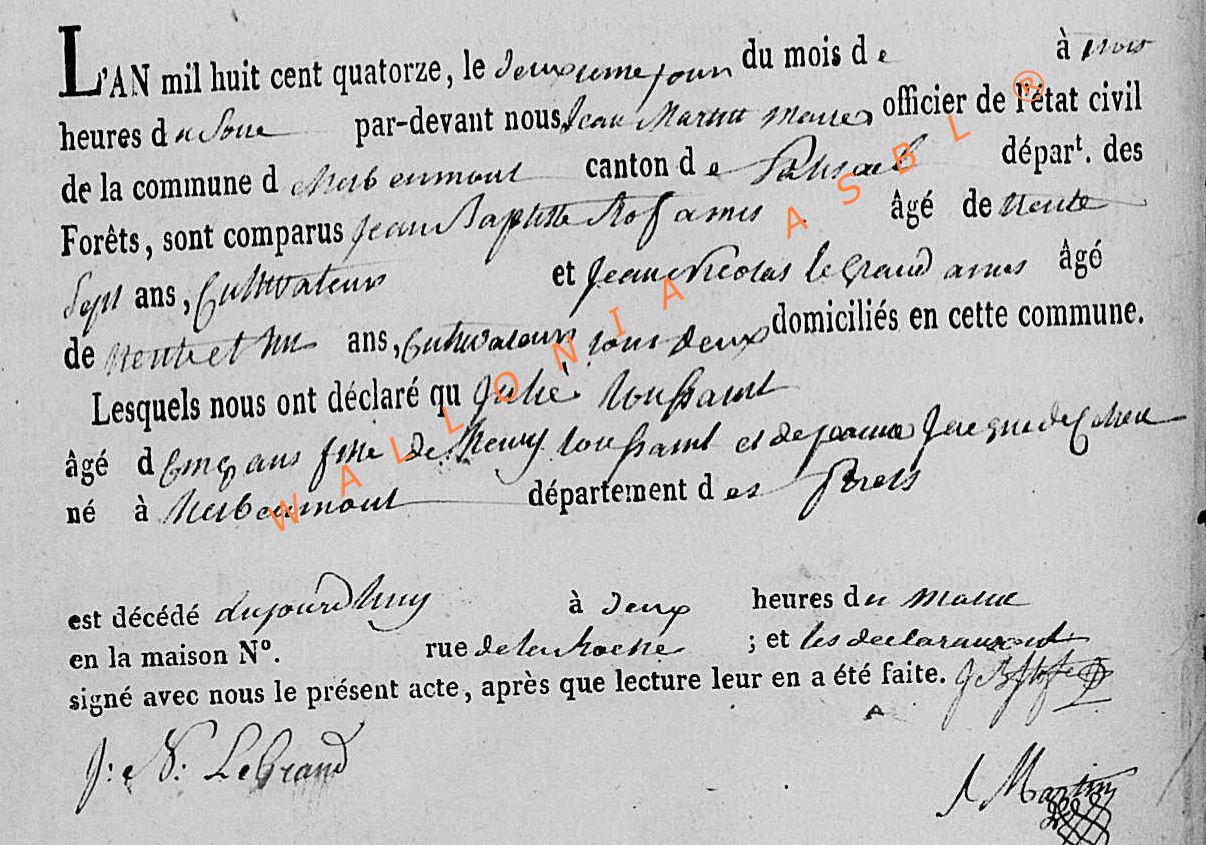 L'AN mil huit cent quatorze, le deuxieme jour du mois de à trois
heures du Soir par-devant nous, Jean Martin Maire officier de l'état civil
de la commune d herbeumont canton de Paliseul départ. des
Forêts, sont comparus jean Baptiste amis âgé de trente
Sept ans, Cultivateur et jean Nicolas le Grand amis âgé
de trente et un ans, Cultivateur tous deux domiciliés en cette commune.
Lesquels nous ont déclaré qu Julie toussaint
âgé d Cinq ans fille de henry toussaint et de jeanne
né à herbeumont département des forets
est décédé aujourdhuy à deux heures du matin
en la maison N°. rue de la Roche ; et les declarans ont
signé avec nous le présent acte, après que lecture leur en a été faite.
J: N: LeGrand
J Martin
WALLONIA ASBL ®